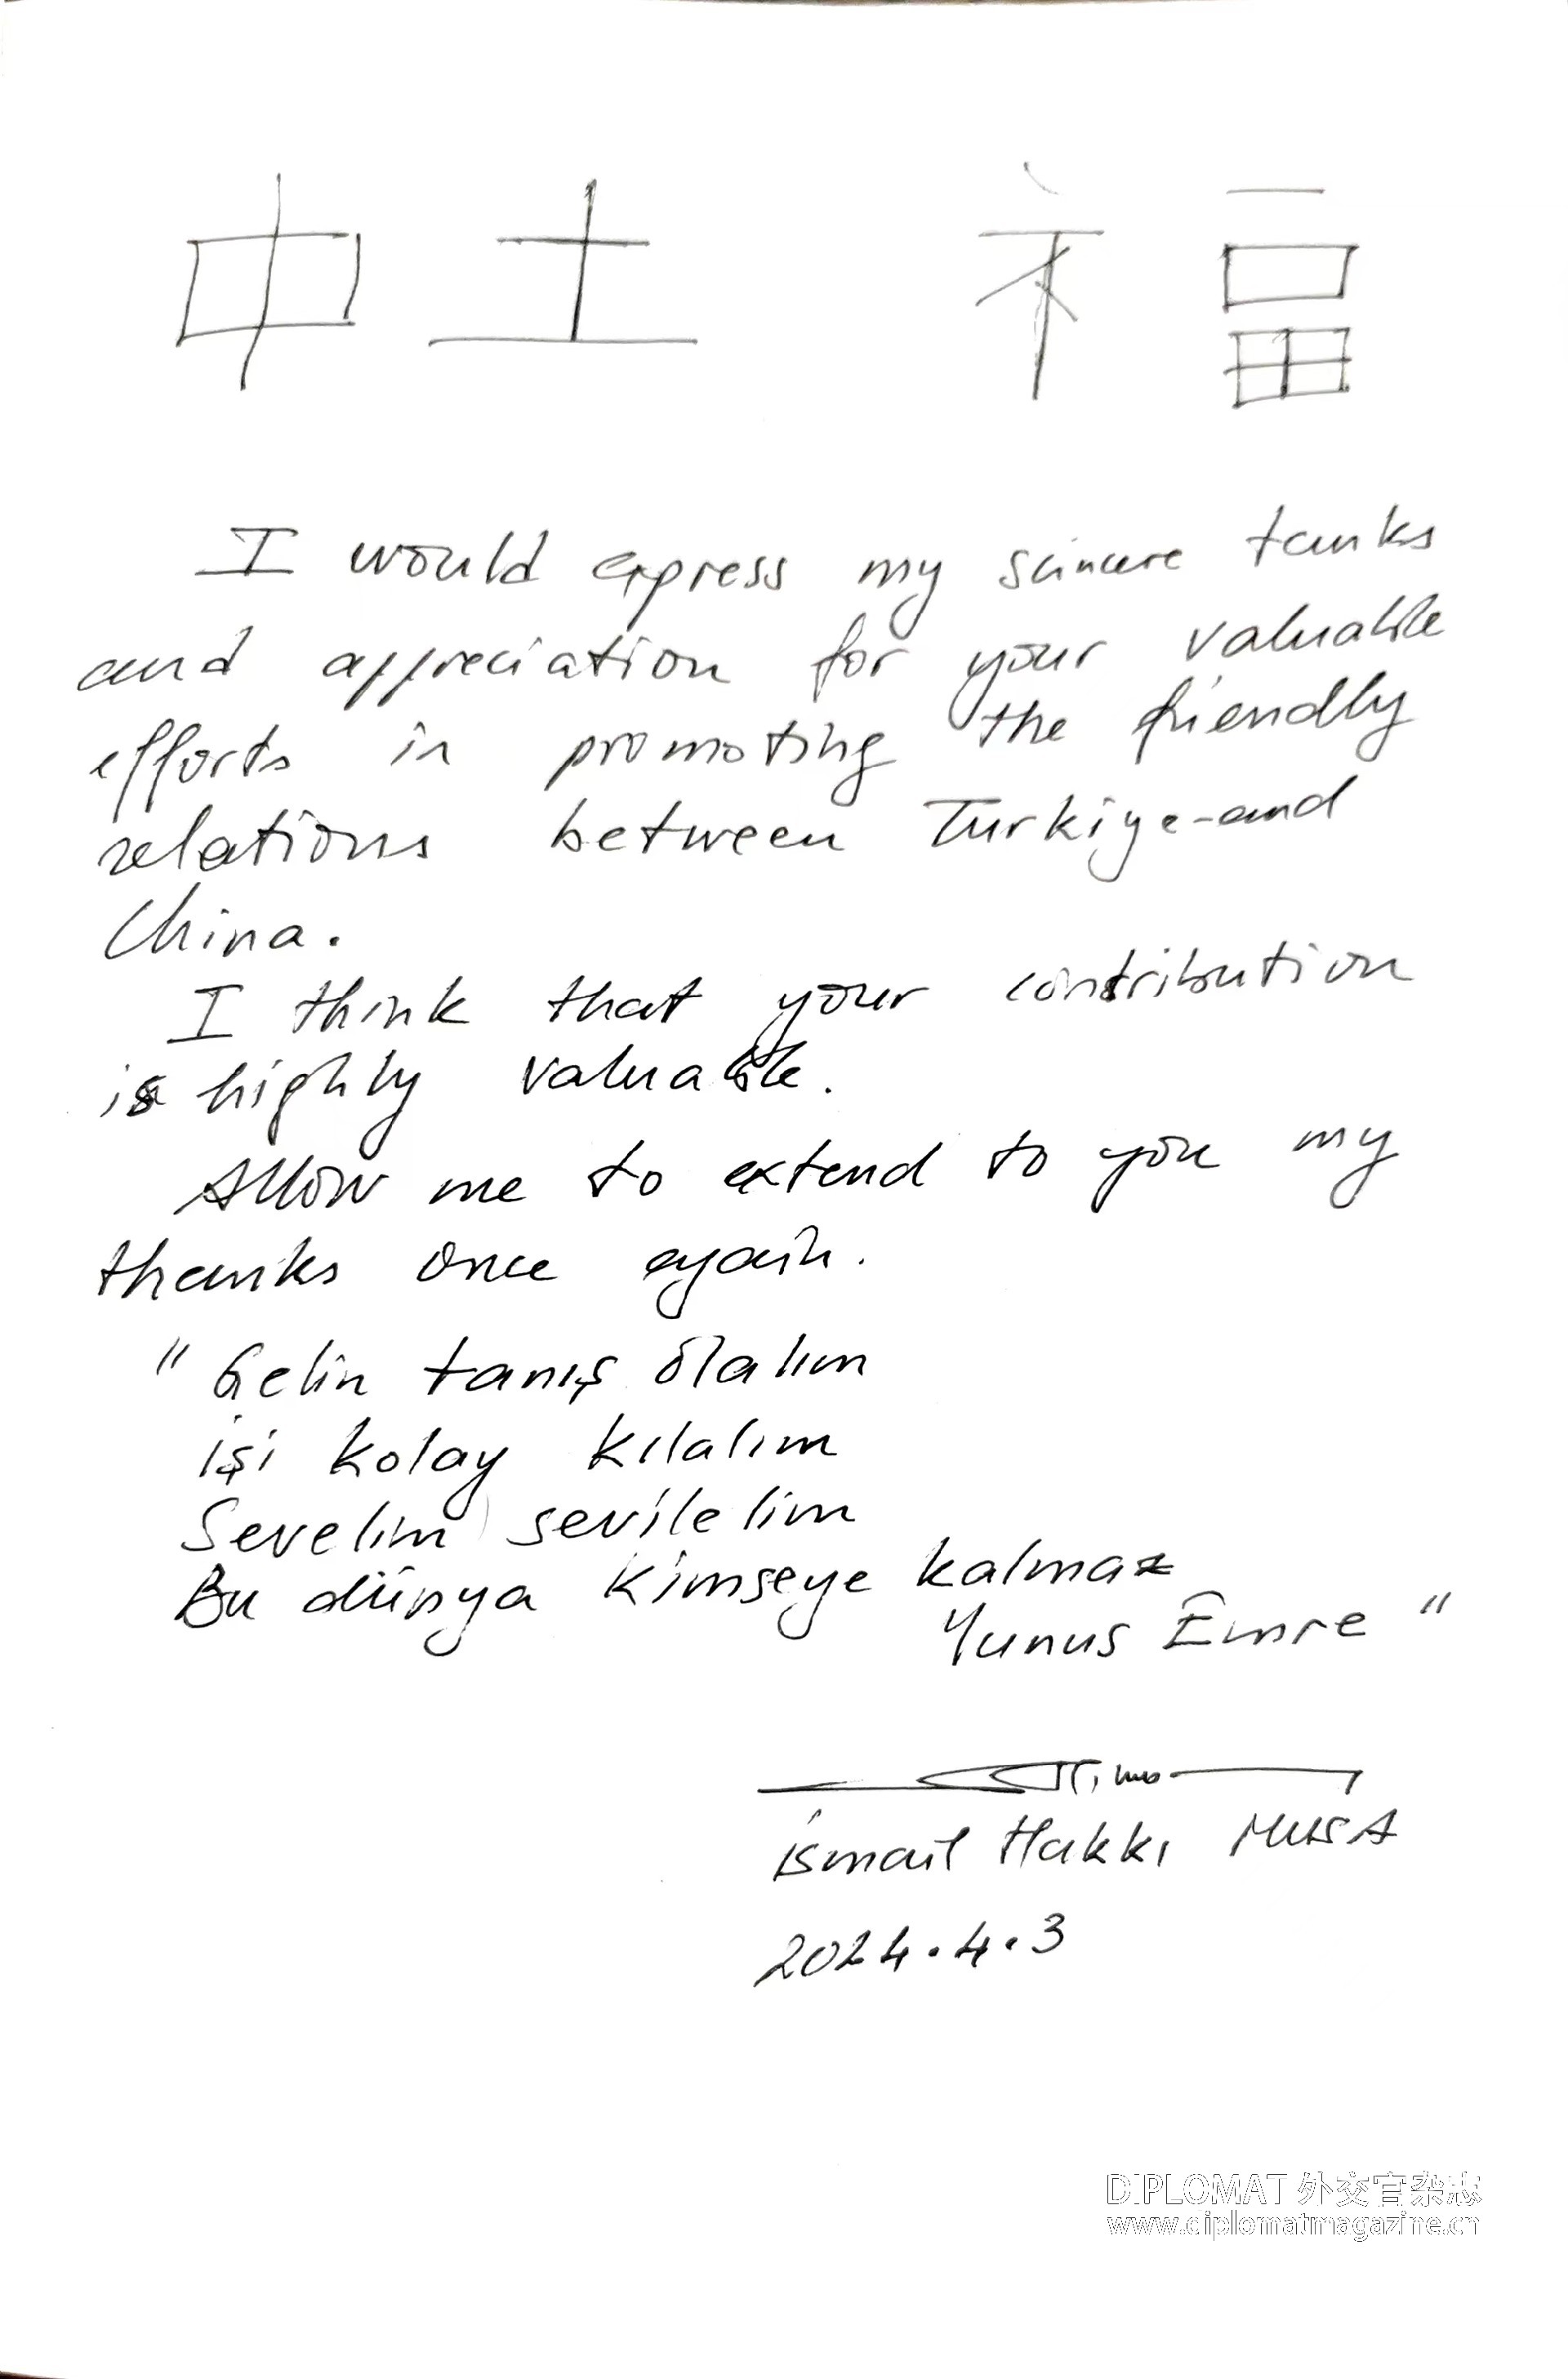 中 土 福
I would express my sincere tanks
and appreciation for your valuable
efforts in promoting the friendly
relations between Turkiye-and
China.
I think that your contribution
is highly valuable.
Allow me to extend to you my
thanks once again.
" Gelin tanış olalım
işi kolay kılalım
Sevelim sevilelim
Bu dünya kimseye kalmaz
Yunus Emre "
ismail Hakkı MUSA
2024.4.3
DIPLOMAT 外交官杂志
www.diplomatmagazine.cn